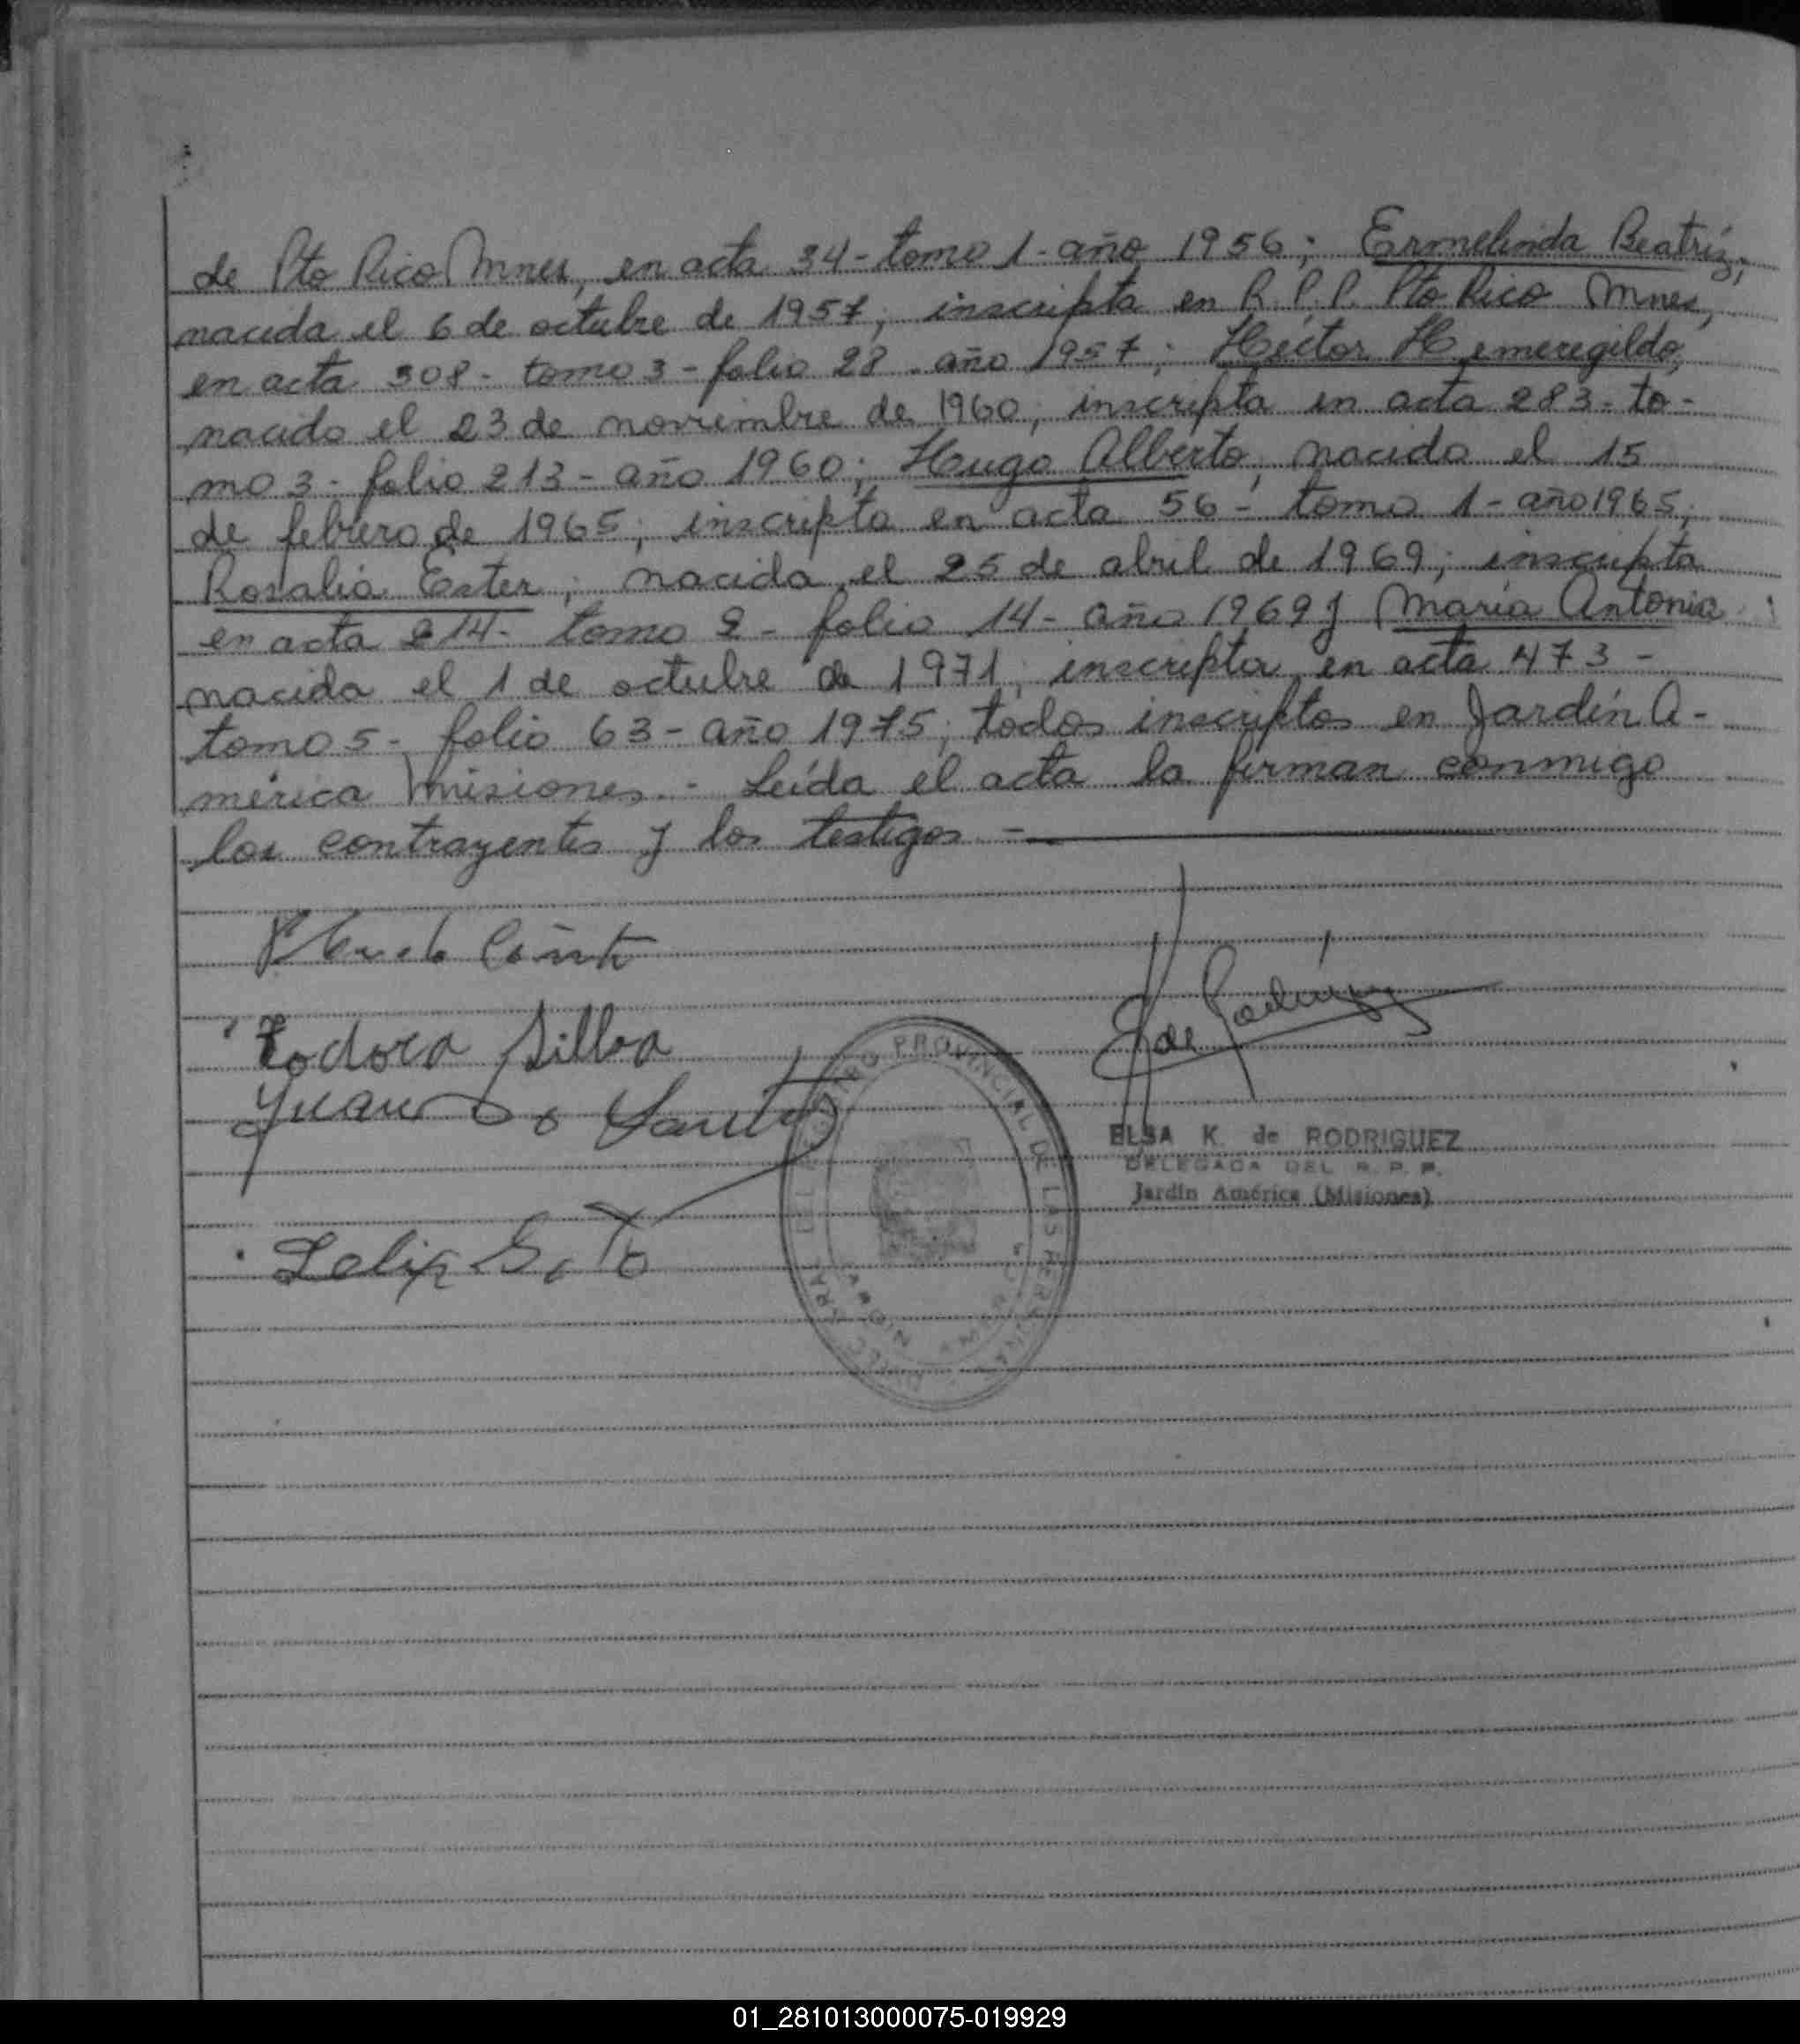 de Pto Rico Mnes, en acta 34- tomo 1- año 1956; Ermelinda Beatríz;
nacida el 6 de octubre de 1957; inscripta en R.P.P. Pto Rico Mnes,
en acta 308- tomo 3- folio 28- año 1957; Héctor Hemeregildo,
nacido el 23 de noviembre de 1960; inscripta en acta 283- to-
mo 3- folio 213- año 1960; Hugo Alberto, nacido el 15
de febrero de 1965; inscripto en acta 56- tomo 1- año 1965;
Rosalia Ester; nacida el 25 de abril de 1969; inscripta
en acta 214- tomo 2- folio 14- año 1969 y María Antonia
nacida el 1 de octubre de 1971; inscripta en acta 473-
tomo 5- folio 63- año 1975; todos inscriptos en Jardín A-
mérica Misiones.- Leída el acta la firman conmigo
los contrayentes y los testigos -
Teodora Silboa
Juan Do Santo
de Rodríguez
REGISTRO PROVINCIAL DE LAS PERSONAS
JARDIN AMERICA
ELSA K. de RODRIGUEZ
DELEGADA DEL R. P. P.
Jardín América (Misiones)
01_281013000075-019929